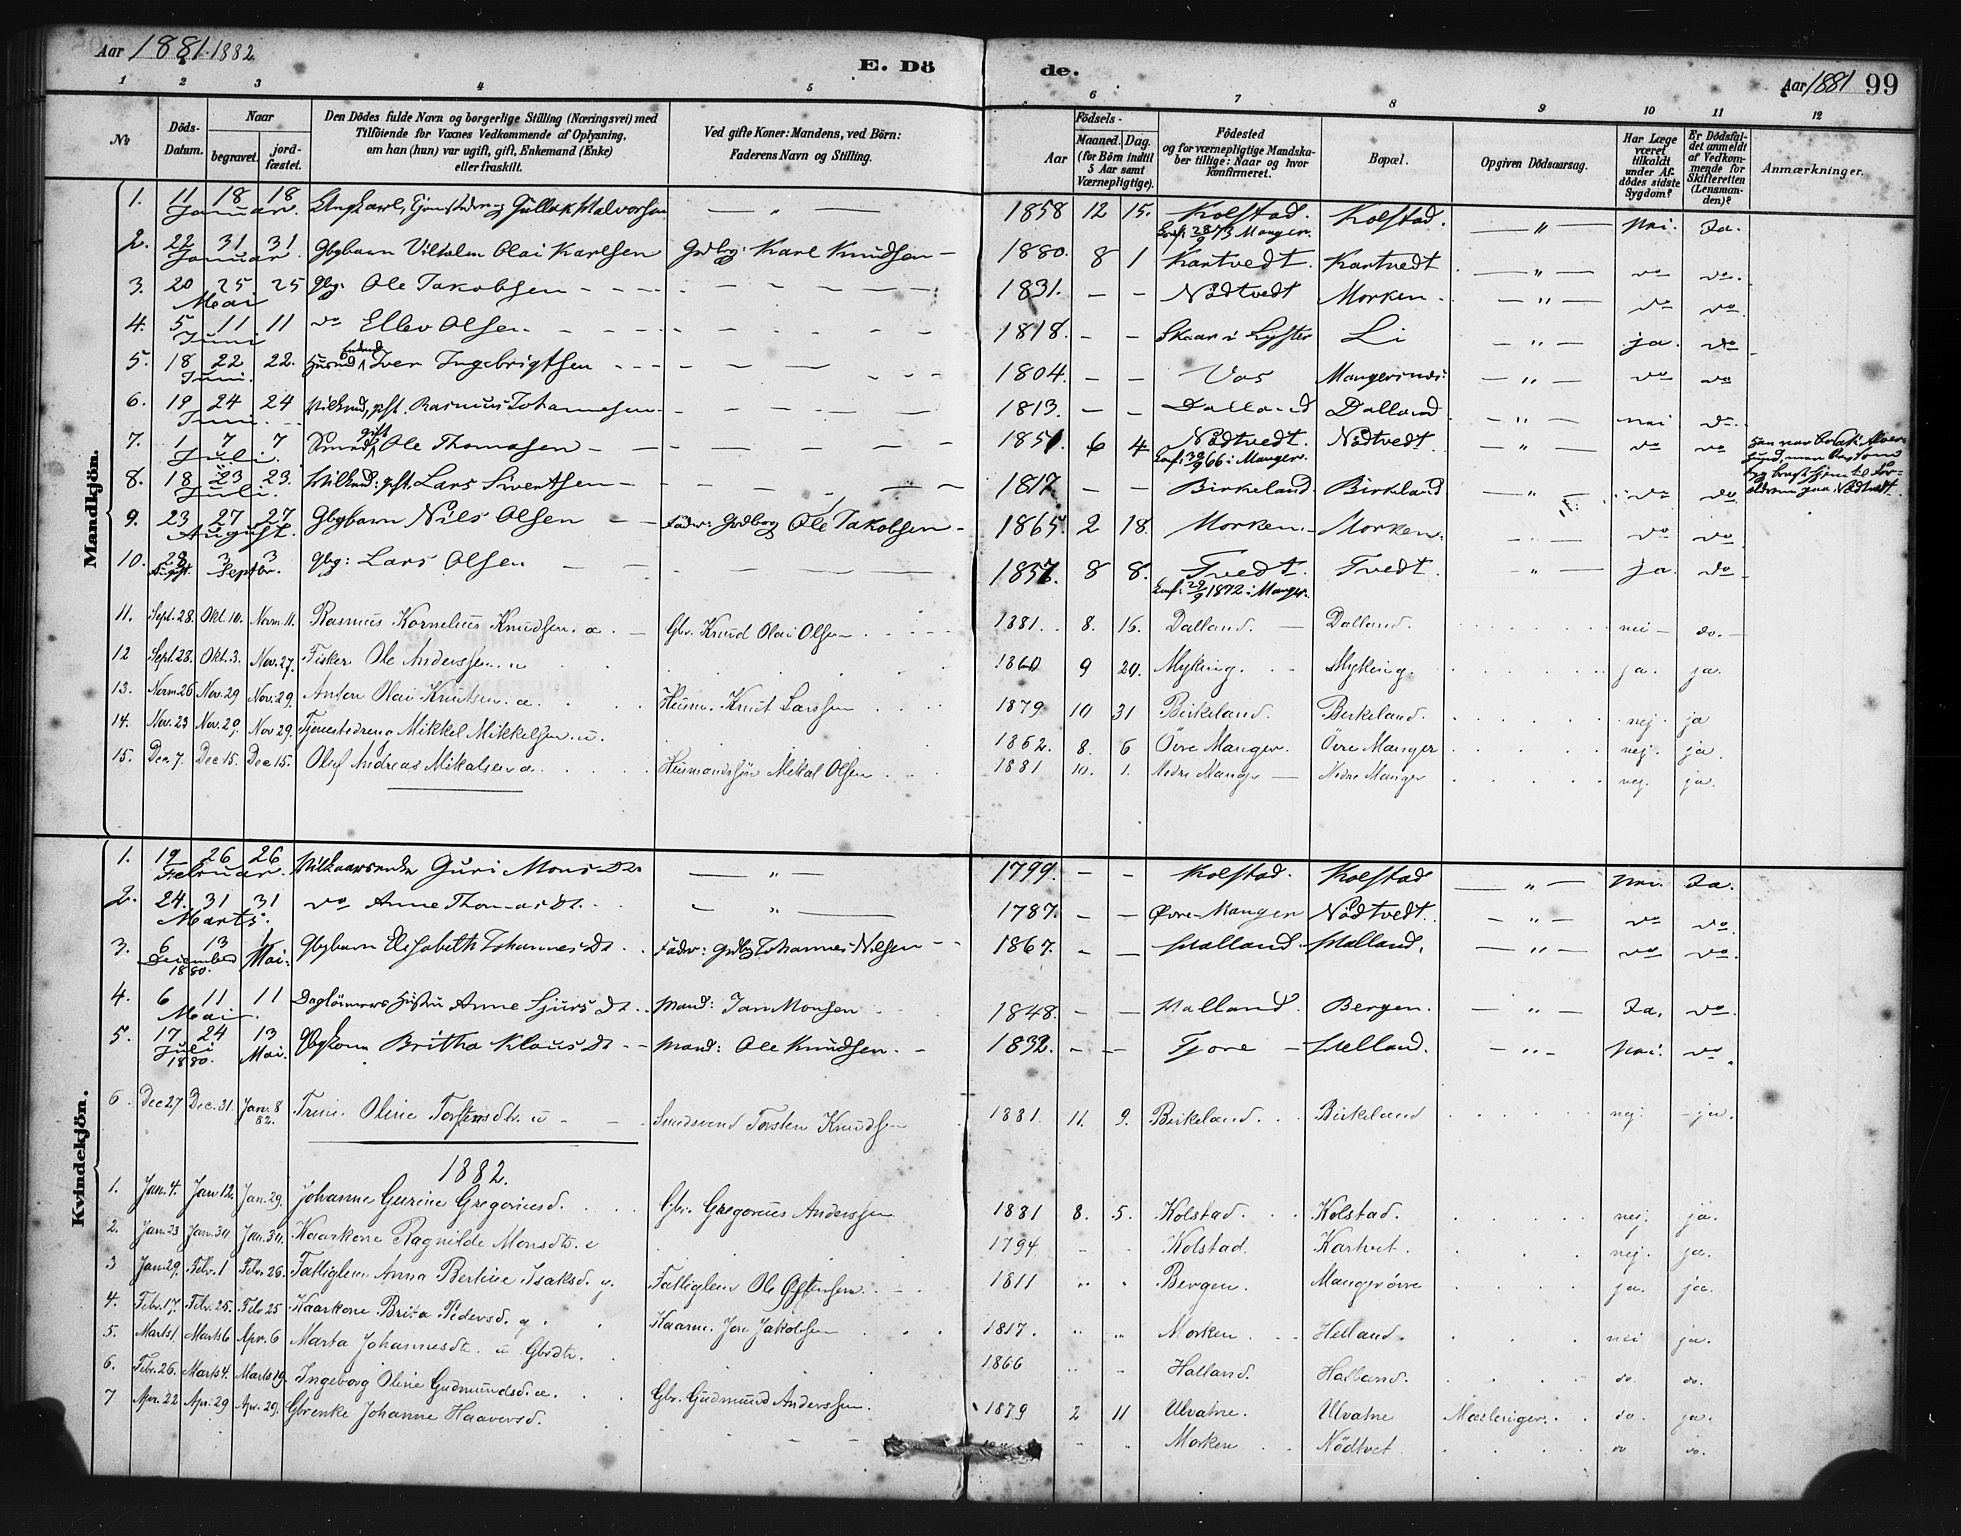 Aar 1881. 1882
E. Dö
de.
Aar 1881 99
1 2 3 4 5 6 7 8 9 10 11 12
No
Döds-Datum.
Naar
begravet.
jord-fæstet.
Den Dödes fulde Navn og borgerlige Stilling (Næringsvei) med
Tilföiende for Voxnes Vedkommende af Oplysning,
om han (hun) var ugift, gift, Enkemand (Enke)
eller fraskilt.
Ved gifte Koner: Mandens, ved Börn:
Faderens Navn og Stilling.
Födsels-
Aar
Maaned. Dag.
(for Börn indtil
5 Aar samt
Værnepligtige).
Födested
og for værnepligtige Mandska-
ber tillige: Naar og hvor
konfirmeret.
Bopæl.
Opgiven Dödsaarsag.
Har Læge
været
tilkaldt
under Af-
dödes sidste
Sygdom?
Er Dödsfal-
det anmeldt
af Vedkom-
mende for
Skifteretten
(Lensman-
den)?
Anmærkninger.
Mandkjön.
1. 11 18 18 Januar. Ungkarl, Tjenstedreng Gullak Halvorsen — " — 1858 12 15. Kolstad. Conf: 28/9 73 Manger. Kolstad. — " — Nei. Ja.
2. 22 31 31 Januar. Gbgbarn Vilhelm Olai Karlsen Grdbrg: Karl Knudsen — 1880. 8 1 Kartvedt. Kartvedt — " — do do.
3. 20 25. 25 Mai Gbg: Ole Jakobsen 1831. — — Nödtvedt Morken. — " — do do.
4. 5 11 11 Juni do Ellev Olsen 1818. — — Skaar i Lyster Li — " — ja. do
5. 18 22 22. Juni. Huusmd Enkemd Iver Ingebrigtsen 1804. — — Vos Mangersnes: — " — do do
6. 19 24 24 Juni. Vilkmd, gift. Rasmus Johannesen 1813. — — Dalland Dalland — " — nei do
7. 1 7 7 Juli. Smd gift Ole Thomasen 1851 6 4 Nödtvedt. Conf: 30/9 66 i Manger. Nödtvedt. — " — do do
8. 18 23 23. Juli. Vilkmd: gft. Lars Sivertsen 1817. — — Birkeland. Birkeland — " — do do
9. 23 27 27 August. Gbgbarn Nils Olsen Fader: Grdbrg Ole Jakobsen 1865 2 18. Morken. Morken. do do
10. 28 Augst. 3 3 Septbr. Gbg: Lars Olsen 1857. 8 8. Tvedt. Conf: 29/9 1872 i Manger. Tvedt. — " — ja. do
11. Sept. 28. Okt. 10. Novm. 11. Rasmus Kornelius Knudsen. u. Gbr. Knud Olai Olsen 1881. 8. 16. Dalland. Dalland. nei do.
12 Sept. 28. Okt. 3. Nov. 27. Fisker Ole Anderssen. u 1860 9 20. Myking. Myking. ja. ja.
13. Novm 26 Nov. 29 Nov. 29. Anton Olai Knutsen. u. Husm. Knut Larssen 1879 10 31 Birkeland. Birkeland. nej. ja
14. Nov. 23 Nov. 29. Nov 29. Tjenestedreng Mikkel Mikkelsen. u. 1862. 8. 6 Övre Manger. Övre Manger nej. ja
15. Dec 7. Dec 15. Dec 15. Oluf Andreas Mikalsen u. Husmandssön Mikal Olsen 1881 10. 1. Nedre Manger Nedre Manger nej. ja.
Kvindekjön.
1. 19 26 26 Februar. Vilkaarsenke Guri Mons Dtr — " — 1799. — — Kolstad. Kolstad — " — Nei. Ja.
2. 24. 31 31 Marts. do Anne Thomas Dt. — " — 1787. — — Øvre-Manger Nödtvedt. — " — do do.
3. 6 13 December 1880. 1 Mai. Gbgbarn Elisabeth Johannes Dt Fader: Grdbg Johannes Nilsen 1867. — — Halland. Halland. — " — do do
4. 6 11 11 Mai. Daglönners Hustru Anne Sjurs Dt. Mand: Jan Monsen 1848. — — Halland. Bergen. — " — Ja. do
5. 17 24 Juli 1880. 13 Mai. Gbgkone Britha Klaus Dt Mand: Ole Knudsen. 1832. — — Fjore Helland. — " — Nei. do
6 Dec 27 Dec. 31 Jan. 8 82. Trine Oline Torstensdtr. u Torsten Knudsen 1881. 11. 9. Birkeland. Birkeland nej. ja.
1882.
1. Jan. 4. Jan 12. Jan. 29. Johanne Gurine Gregoriusd. Gbr. Gregorius Anderssen 1881 8. 5. Kolstad. Kolstad. nej. ja.
2. Jan. 23 Jan. 30 Jan. 30. Kaarkone Ragnilde Monsdtr. e 1794 Kolstad. Kartvet. nej. ja.
3 Jan. 29. Febr. 1 Febr. 26. Fattiglem Anna Bertine Isaksd. g. Fattiglem Ole Østensen 1811 Bergen. Manger övre ja. ja.
4. Febr. 17. Febr. 25. Febr 25 Kaarkone Brita Pedersd. g. Kaarm. Jon Jakobsen 1817. Morken Helland. nei ja.
5. Marts 1. Marts 6 Apr. 6 Marta Johannesdtr. u Gbrdtr. 1866 Halland. Halland. do. do.
6. Febr. 26. Marts 4. Marts 19. Ingeborg Oline Gudmundsd. u. Gbr. Gudmund Anderssen. 1879 2 11 Ulvatne. Ulvatne Mæslinger. do. ja.
7 Apr. 22 Apr. 29 Apr. 29. Gbrenke Johanne Haaversd. Morken Nödtvet. do do.